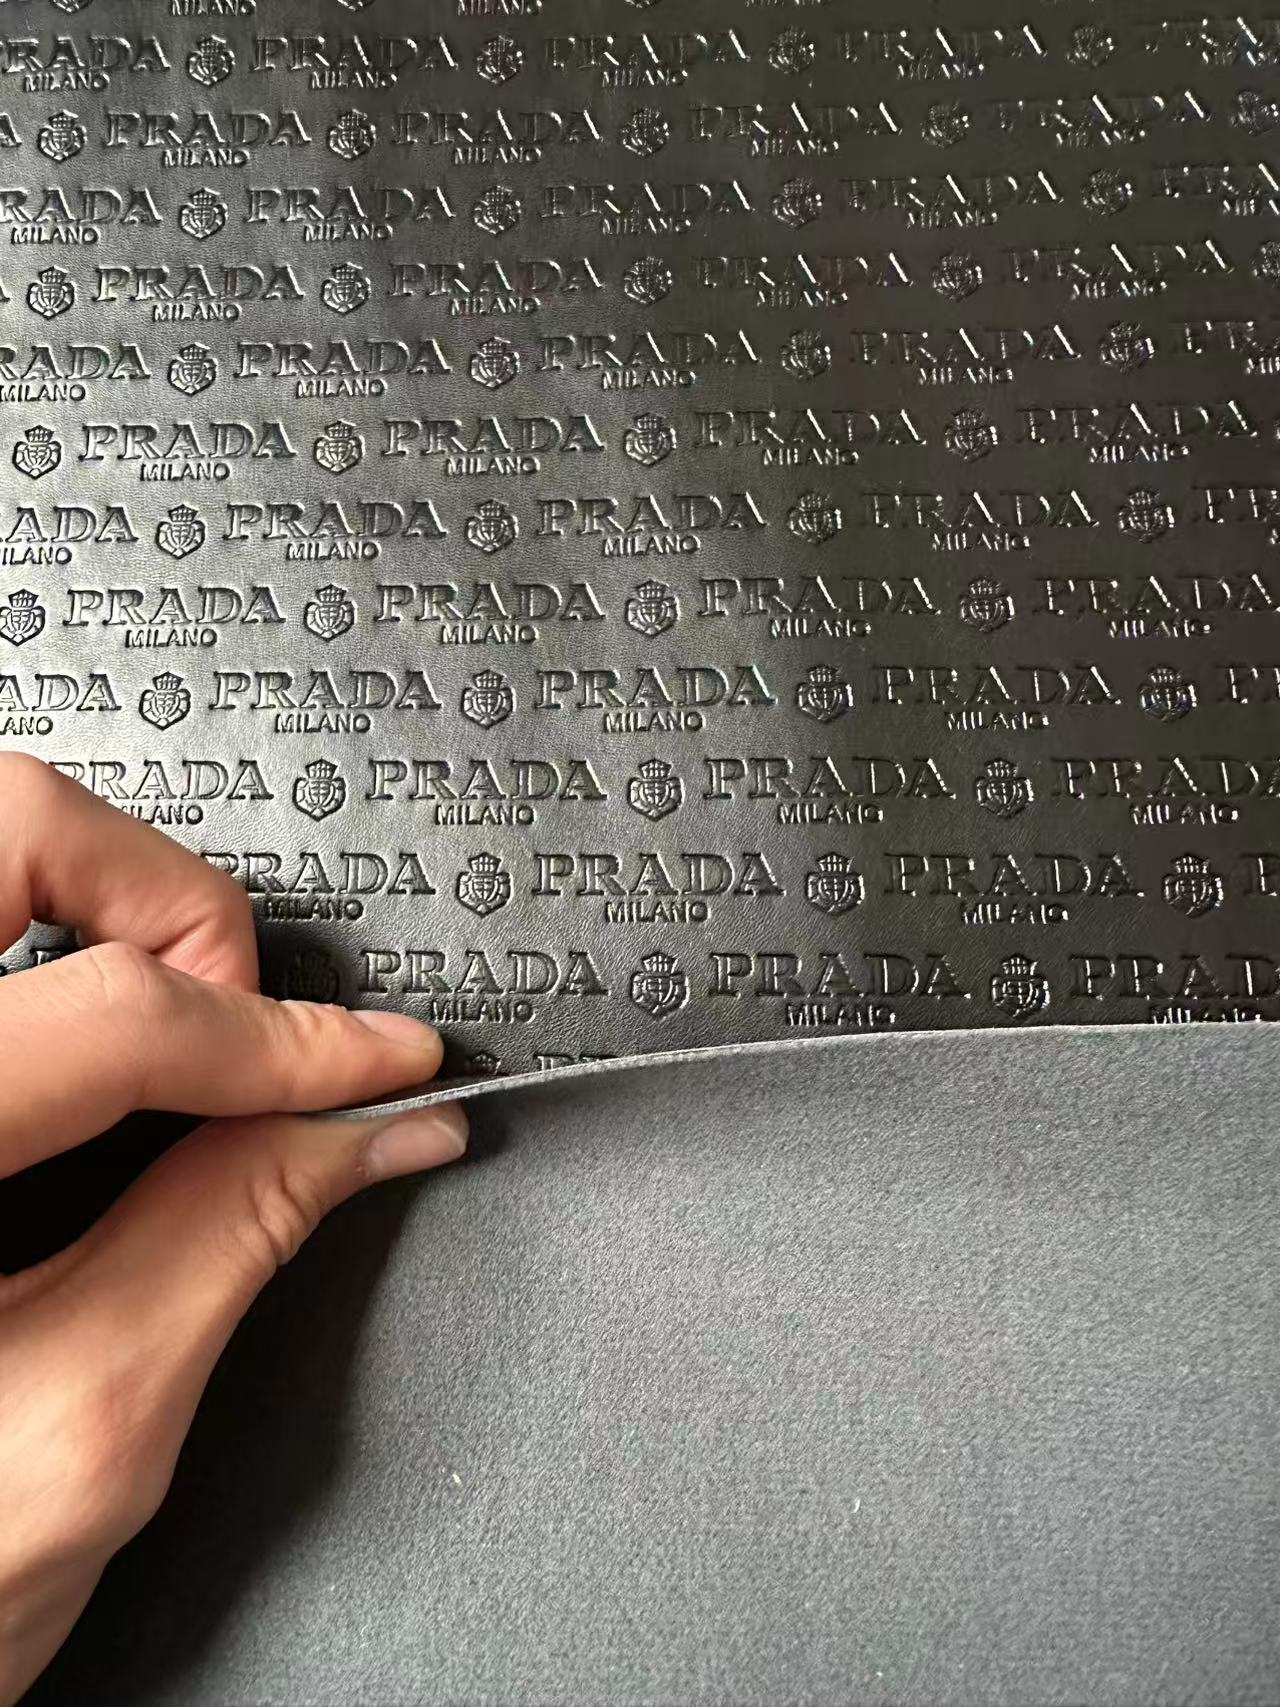 MILANO MILANO MILANO
PRADA PRADA PRADA PRADA
MILANO MILANO MILANO MILANO
PRADA PRADA PRADA PRADA
MILANO MILANO MILANO MILANO
RADA PRADA PRADA PRADA
MILANO MILANO MILANO MILANO
PRADA PRADA PRADA PRADA
MILANO MILANO MILANO MILANO
RADA PRADA PRADA PRADA
MILANO MILANO MILANO MILANO
PRADA PRADA PRADA PRADA
MILANO MILANO MILANO MILANO
ADA PRADA PRADA PRADA PR
ILANO MILANO MILANO MILANO
PRADA PRADA PRADA PRADA
MILANO MILANO MILANO MILANO
ADA PRADA PRADA PRADA
ANO MILANO MILANO MILANO
PRADA PRADA PRADA PRADA
MILANO MILANO MILANO MILANO
PRADA PRADA PRADA P
MILANO MILANO MILANO
PRADA PRADA PRAD
MILANO MILANO MILAN